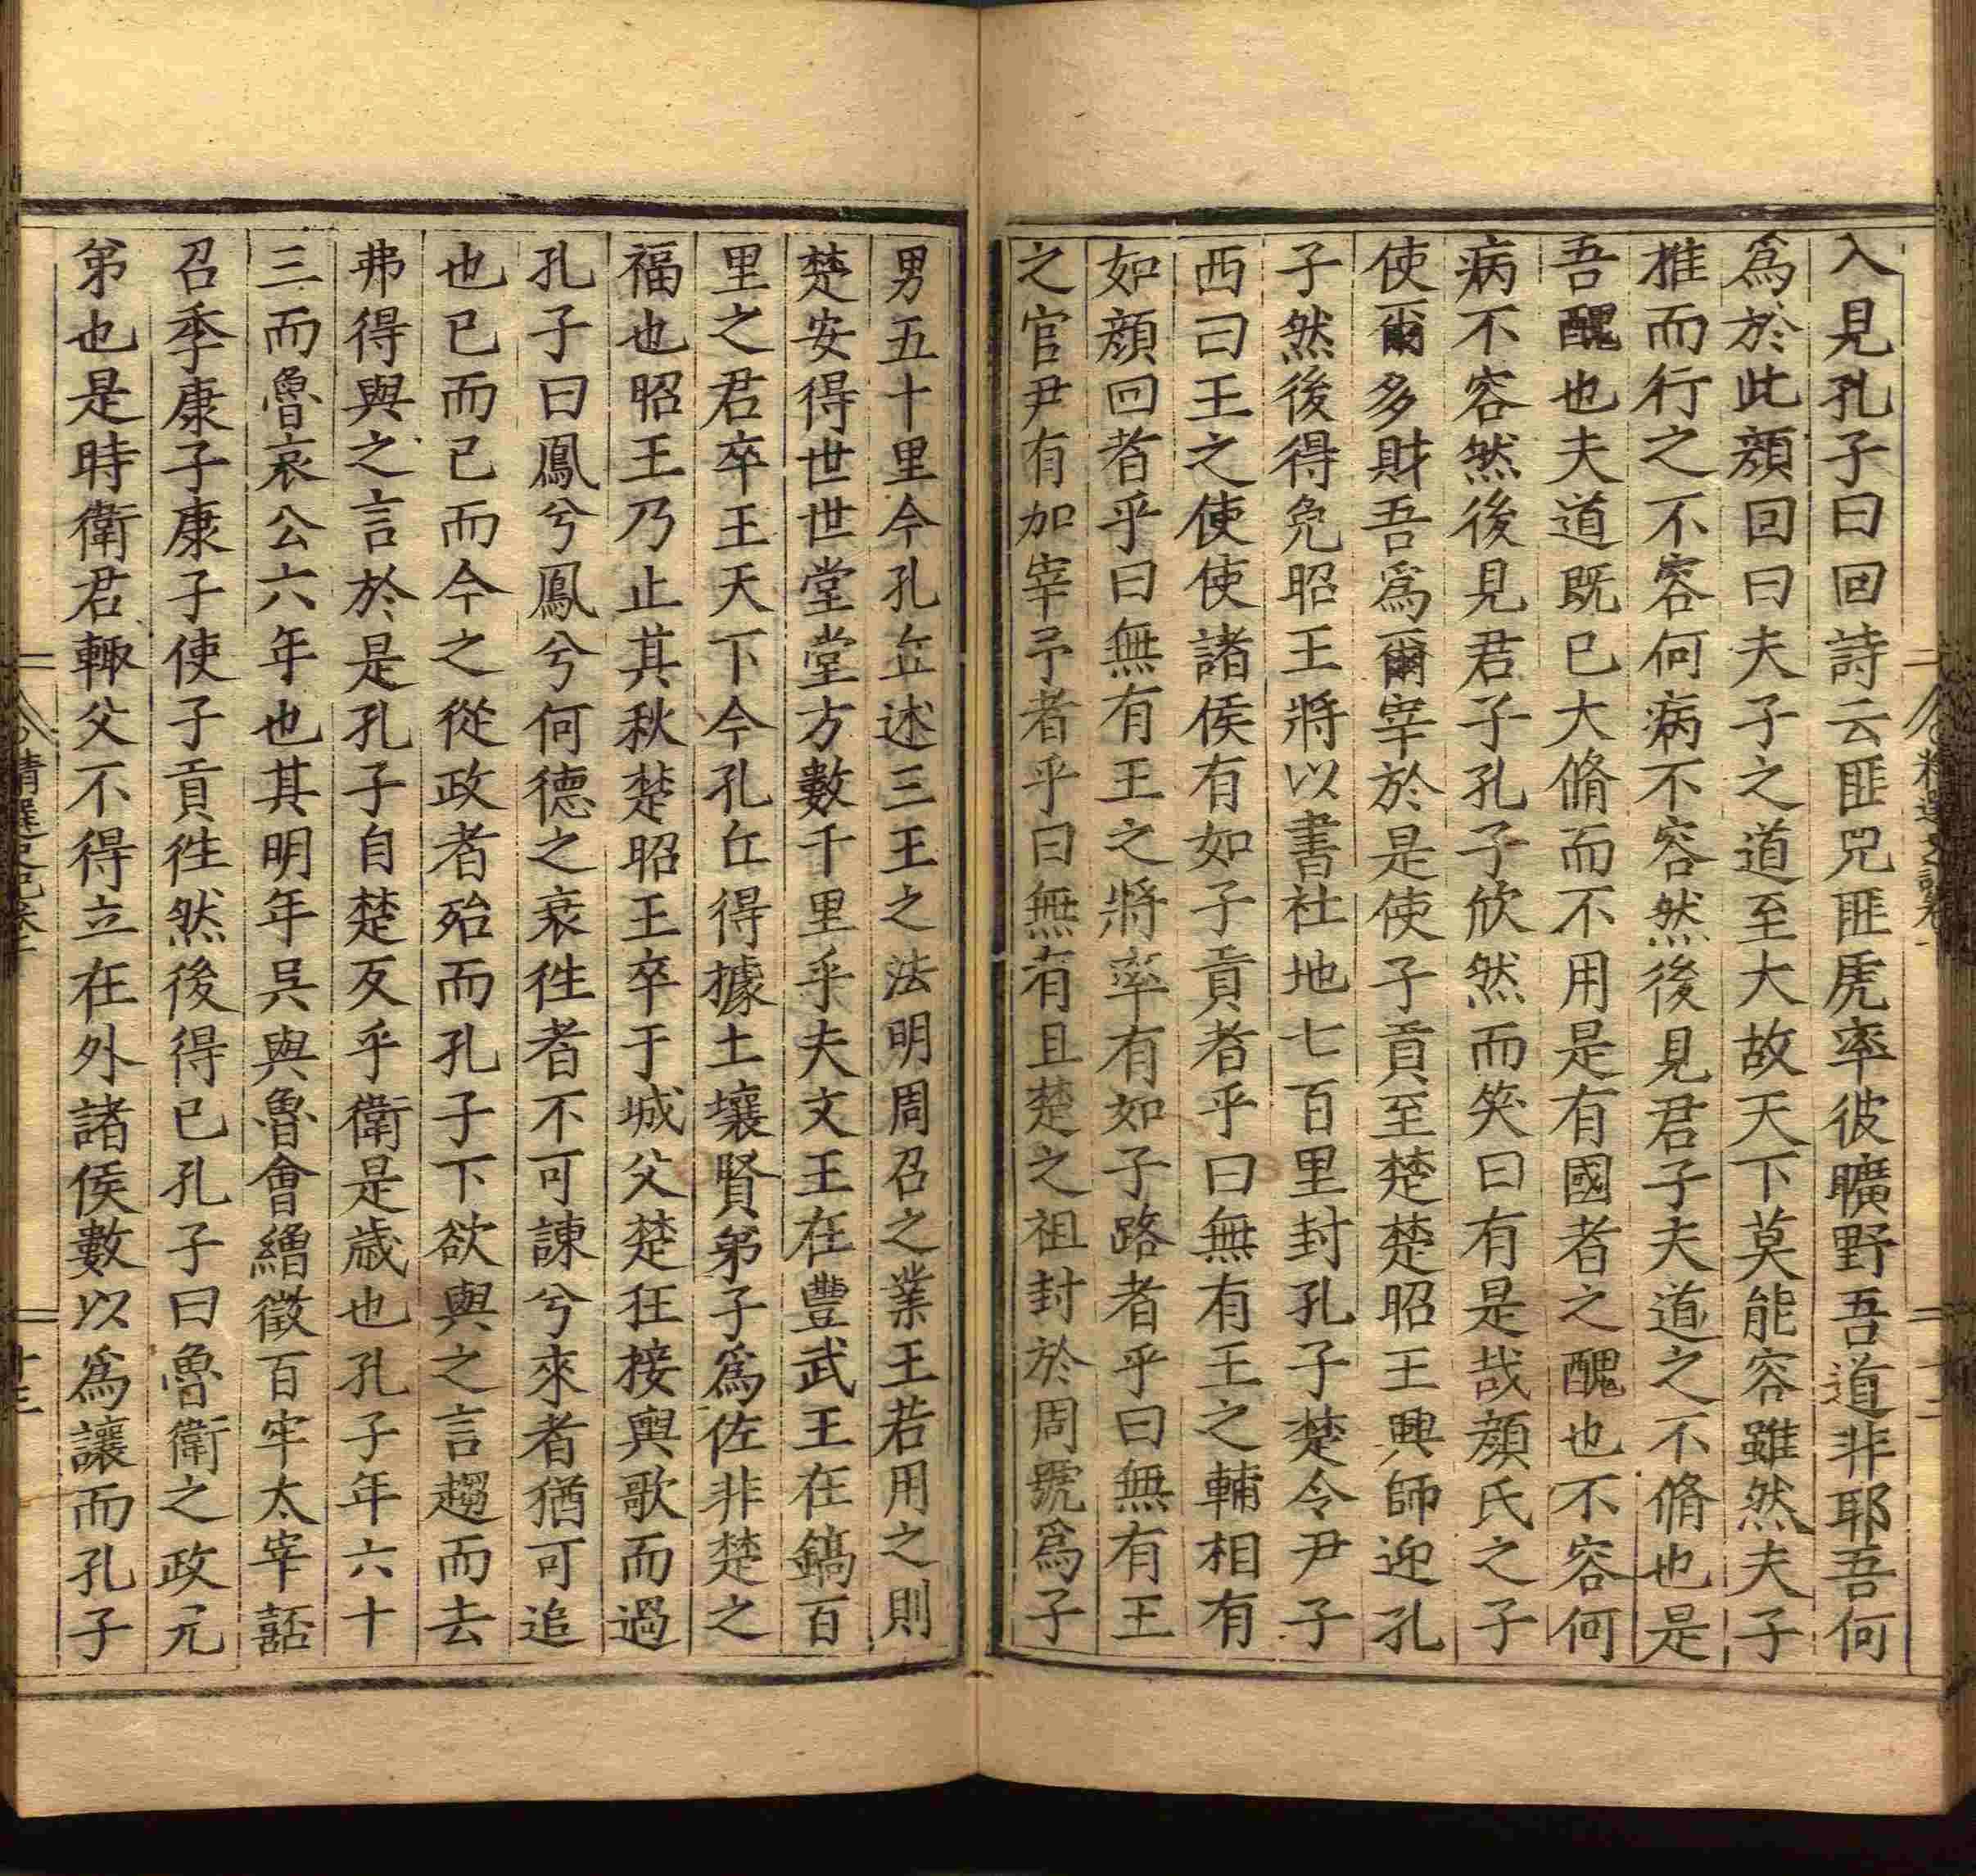 入見孔子曰回詩云匪兕匪虎率彼曠野吾道非耶吾何
爲於此顔回曰夫子之道至大故天下莫能容雖然夫子
推而行之不容何病不容然後見君子夫道之不脩也是
吾醜也夫道既已大脩而不用是有國者之醜也不容何
病不容然後見君子孔子欣然而笑曰有是哉顔氏之子
使爾多財吾爲爾宰於是使子貢至楚楚昭王興師迎孔
子然後得免昭王將以書社地七百里封孔子楚令尹子
西曰王之使使諸侯有如子貢者乎曰無有王之輔相有
如顔回者乎曰無有王之將率有如子路者乎曰無有王
之官尹有加宰予者乎曰無有且楚之祖封於周號爲子
男五十里今孔丘述三王之法明周召之業王若用之則
楚安得世世堂堂方數千里乎夫文王在豐武王在鎬百
里之君卒王天下今孔丘得據土壤賢弟子爲佐非楚之
福也昭王乃止其秋楚昭王卒于城父楚狂接輿歌而過
孔子曰鳳兮鳳兮何德之衰徃者不可諫兮來者猶可追
也已而已而今之從政者殆而孔子下欲與之言趨而去
弗得與之言於是孔子自楚反乎衛是歳也孔子年六十
三而魯哀公六年也其明年吳與魯會繒徵百牢太宰嚭
召季康子康子使子貢徃然後得已孔子曰魯衛之政兄
弟也是時衛君輙父不得立在外諸侯數以爲讓而孔子
精選史記卷二
十三